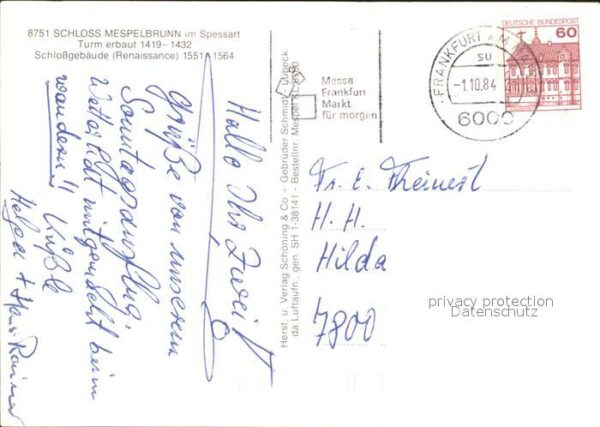 8751 SCHLOSS MESPELBRUNN im Spessart
Turm erbaut 1419–1432
Schloßgebäude (Renaissance) 1551-1564
Hallo Ihr Zwei!
Grüße von unserem
Sonntagsausflug.
Wetter lädt
beim
wandern!! Küßle
Helga + Hans Rainer
Herst. u. Verlag Schöning & Co + Gebrüder Schmidt - Lübeck
da Luftaufn., gen. SH 1-38141 - Bestellnr. Mespel
Messe
Frankfurt
Markt
für morgen
FRANKFURT AM MAIN
su
-1.10.84
6000
DEUTSCHE BUNDESPOST
60
Fr. E. Theinert
H. H.
Hilda
7800
privacy protection
Datenschutz